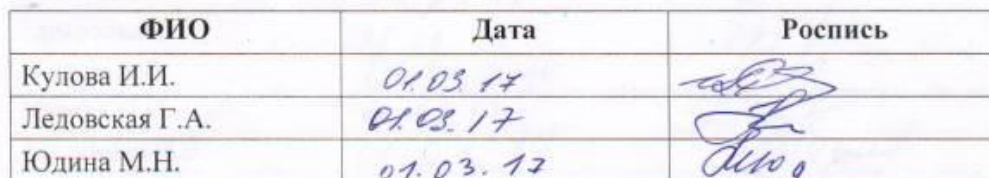 ФИО Дата Роспись
Кулова И.И. 01.03.17
Ледовская Г.А. 01.03.17
Юдина М.Н. 01.03.17